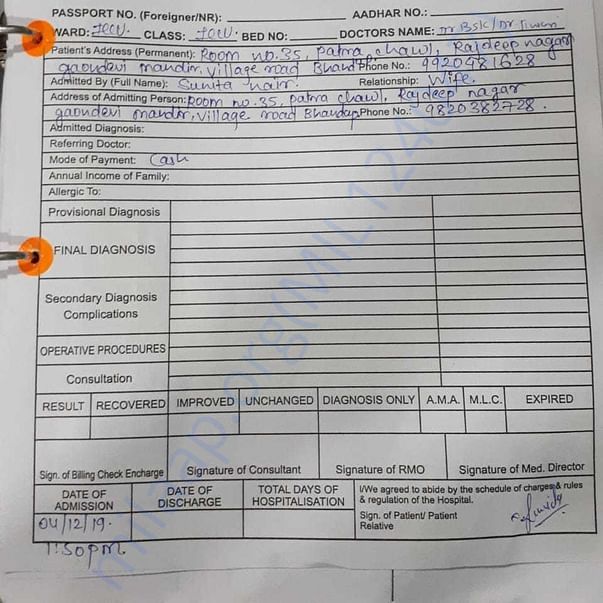 PASSPORT NO. (Foreigner/NR): AADHAR NO.:
WARD: ICU. CLASS: ICU. BED NO.: DOCTORS NAME: Dr Bsk/Dr
Patient's Address (Permanent): Room no.35, patra chawl, Rajdeep nagar
gaondevi mandir, village road Bhandup Phone No.: 9920481628
Admitted By (Full Name): Sunita nair. Relationship: Wife.
Address of Admitting Person: Room no.35, patra chawl, Rajdeep nagar
gaondevi mandir, village road Bhandup Phone No.: 9820382728.
Admitted Diagnosis:
Referring Doctor:
Mode of Payment: Cash
Annual Income of Family:
Allergic To:
Provisional Diagnosis
FINAL DIAGNOSIS
Secondary Diagnosis
Complications
OPERATIVE PROCEDURES
Consultation
RESULT RECOVERED IMPROVED UNCHANGED DIAGNOSIS ONLY A.M.A. M.L.C. EXPIRED
Sign. of Billing Check Encharge Signature of Consultant Signature of RMO Signature of Med. Director
DATE OF ADMISSION DATE OF DISCHARGE TOTAL DAYS OF HOSPITALISATION
I/We agreed to abide by the schedule of charges & rules
& regulation of the Hospital.
Sign. of Patient/ Patient
Relative
04/12/19.
1:50pm
milaap.org(MIL1240